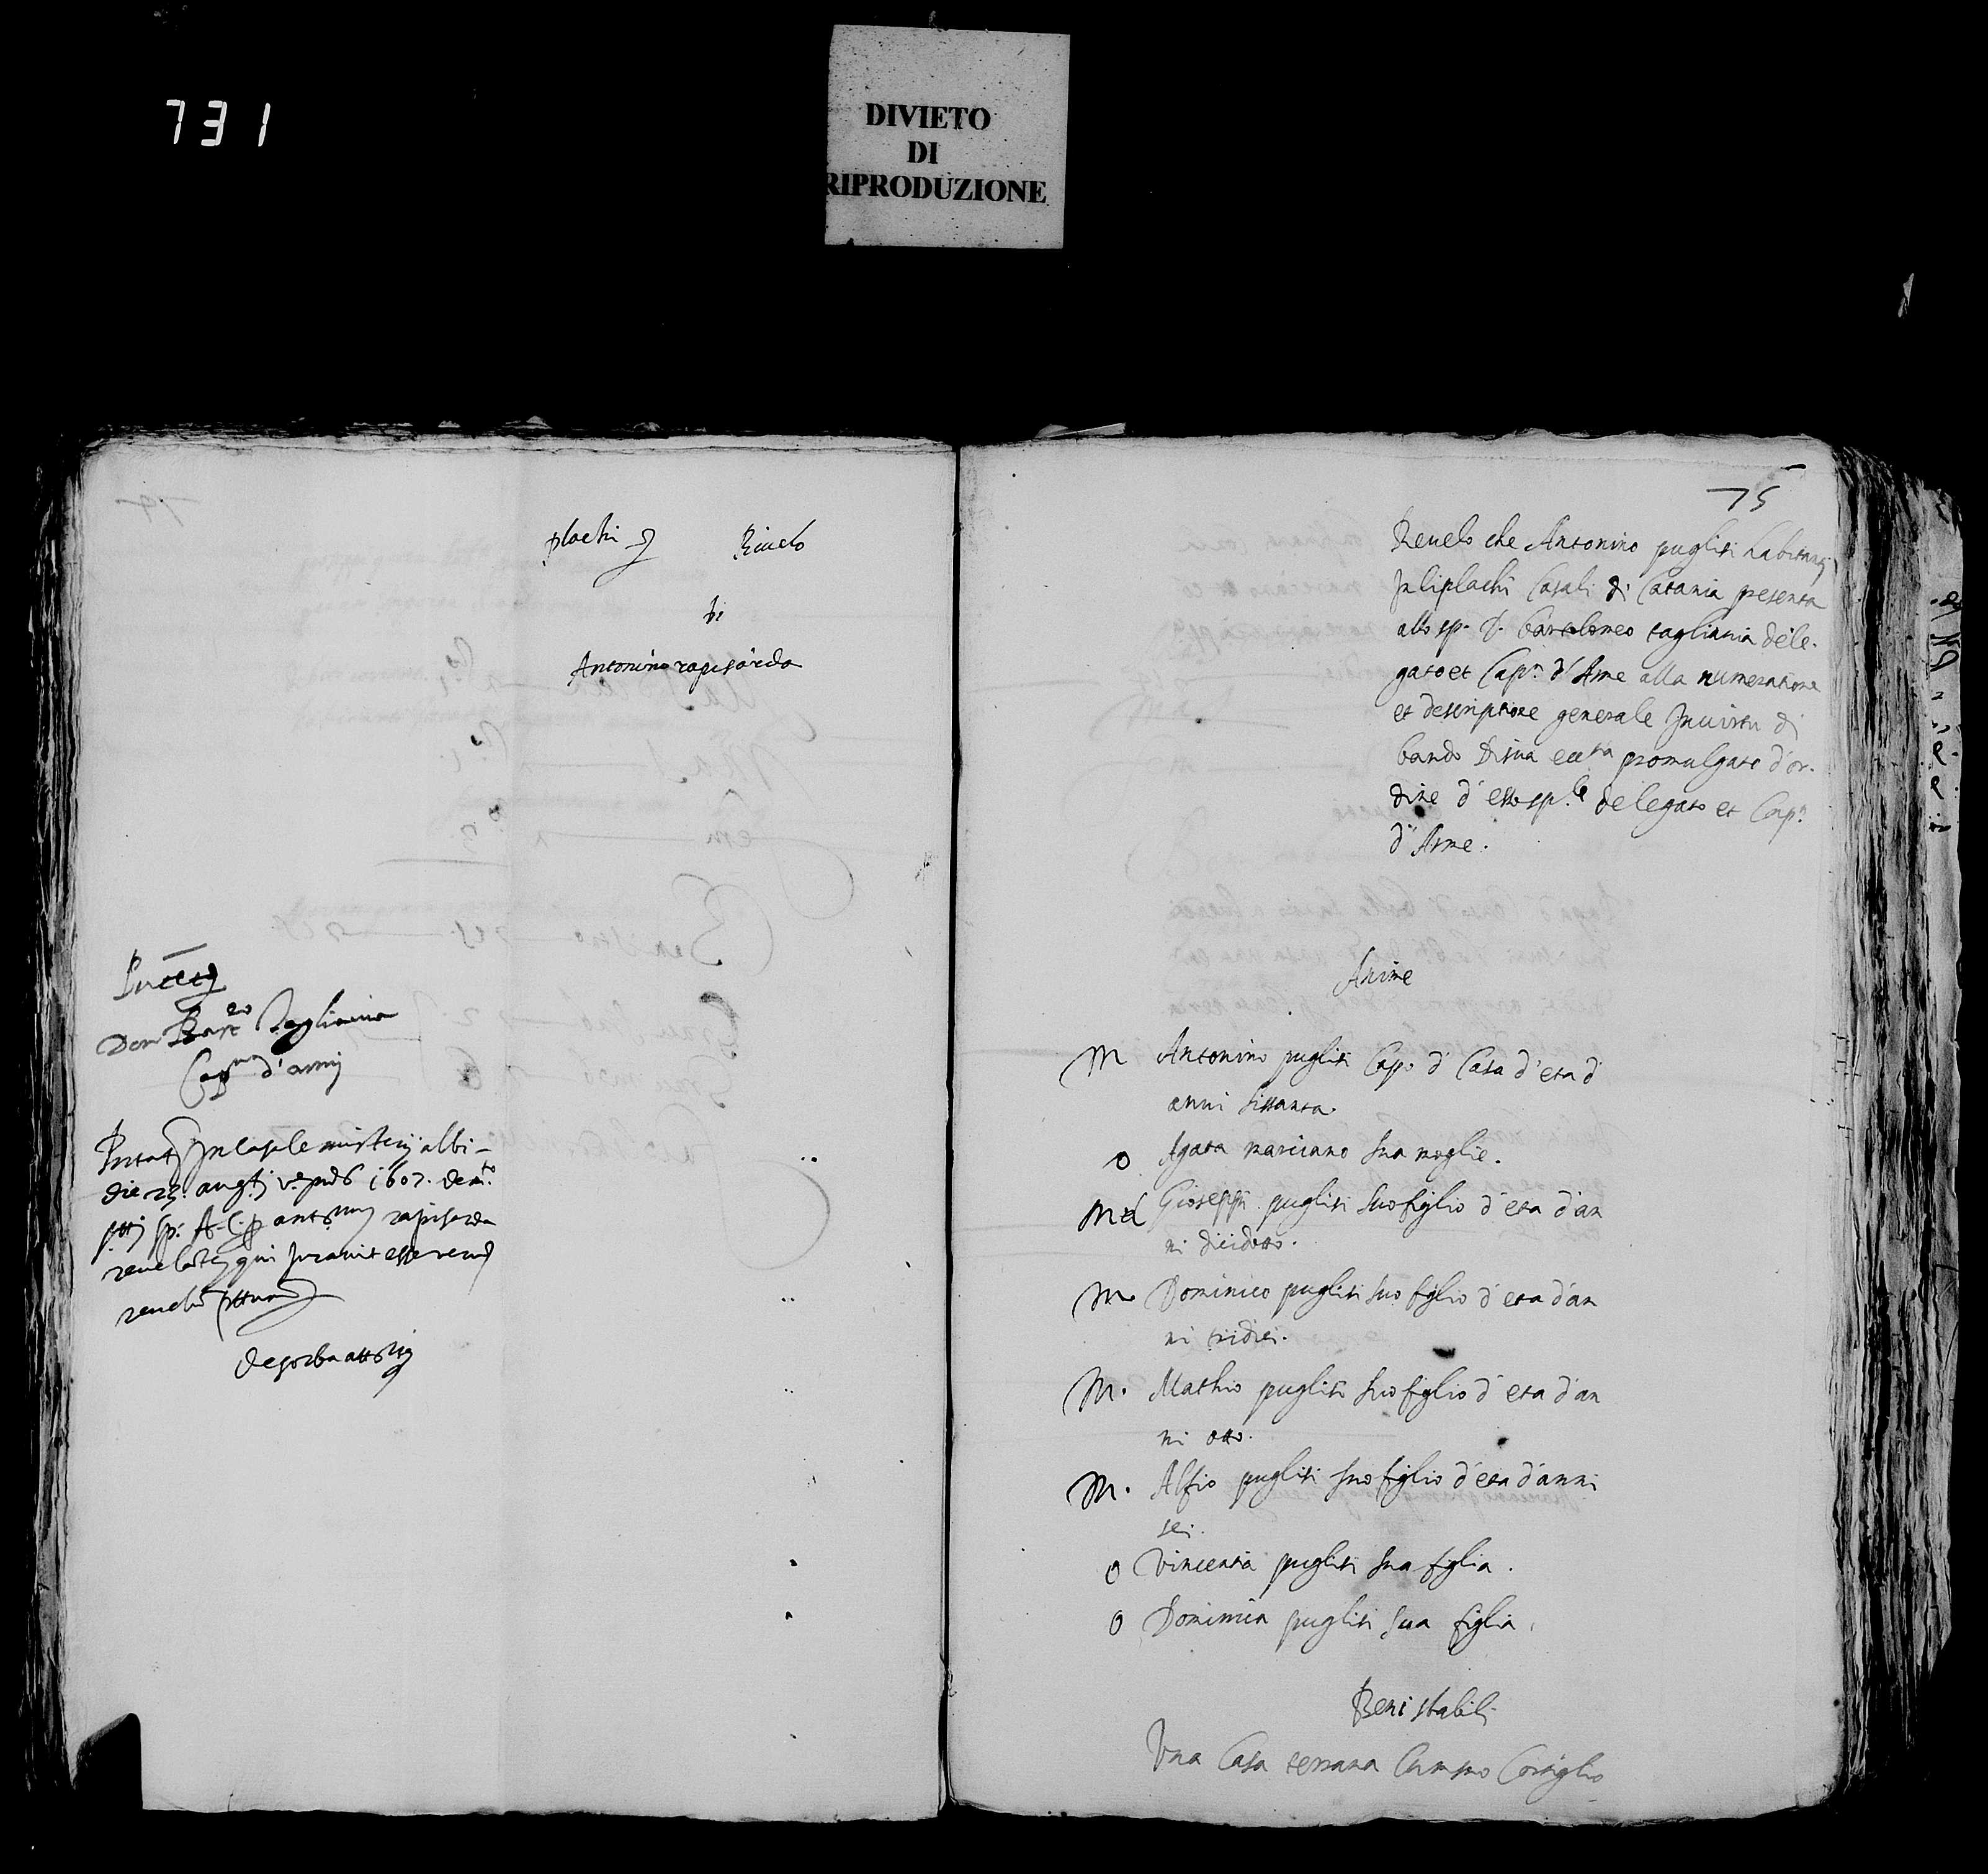 731
DIVIETO
DI
RIPRODUZIONE
plachi Rivelo
di
Antonino rapisarda
Don Bart.eo Tagliavia
Cap.no d'armi
die 23 aug.ti 1607
rapisarda
qui juravit esse verum
75
Revelo che Antonino puglisi habitanti
In li plachi Casali di Catania presenta
allo sp. D. bartolomeo tagliavia dele-
gato et Cap.n d'Arme alla numeratione
et descriptione generale In virtu di
bando di sua ecc.tia promulgato d'or-
dine d'esso sp.le delegato et Cap.n
d'Arme.
Anime
M Antonino puglisi Capo di Casa d'eta d
anni sittanta.
o Agata marciano sua moglie.
M Gioseppi puglisi suo figlio d'eta d'an
ni dicidotto.
M. Dominico puglisi suo figlio d'eta d'an
ni tridici.
M. Mathio puglisi suo figlio d'eta d'an
ni otto.
M. Alfio puglisi suo figlio d'eta d'anni
sei.
o Vincenza puglisi sua figlia.
o Dominica puglisi sua figlia.
Beni stabili
Una Casa terrana Cortiglio